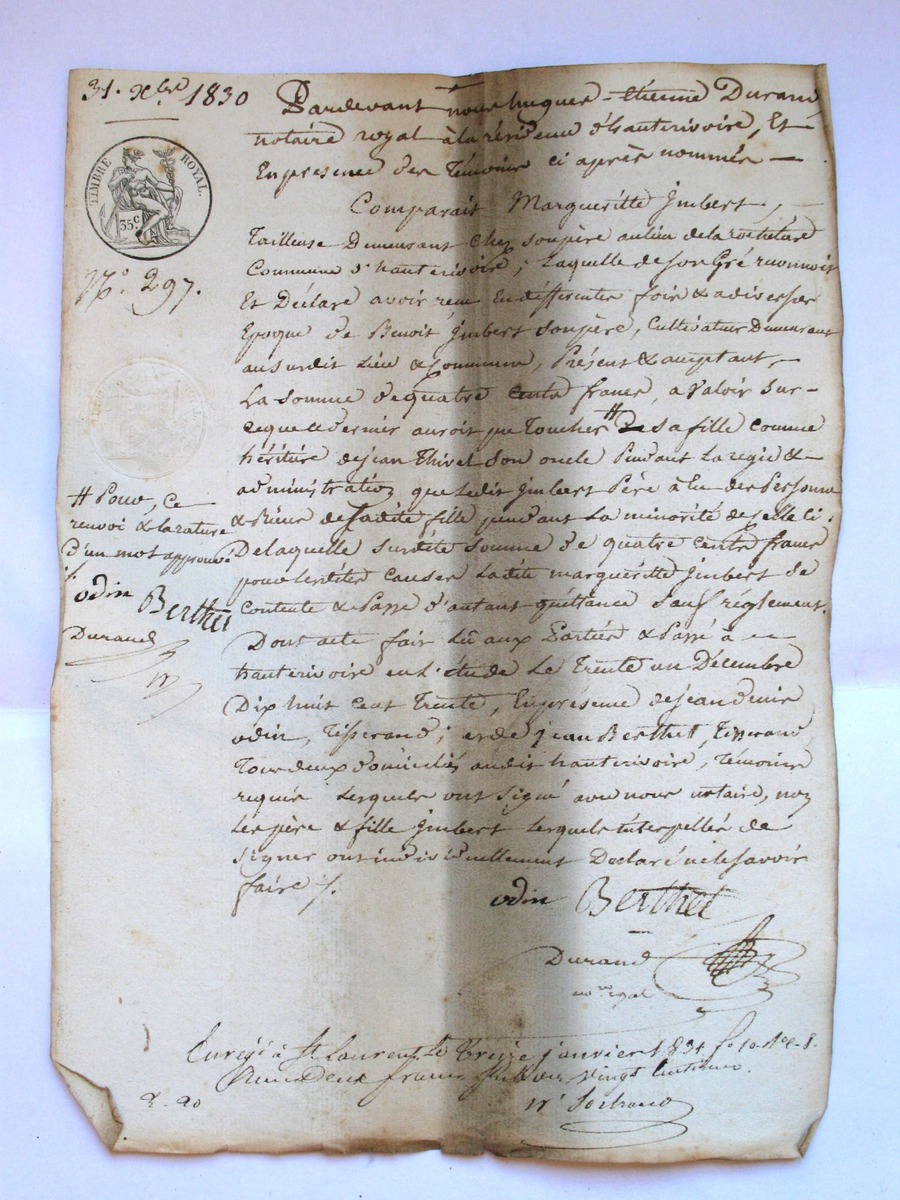 31. Xbre 1830
Pardevant nous hugues-étienne Durand
notaire royal à la résidence d'hauterivoire, Et
En presence des Témoins ci après nommés —
TIMBRE ROYAL.
35c
Comparait Margueritte Imbert,
Tailleuse Demeurant chez son père au lieu de la
Commune d'hauterivoire; Laquelle de son Gré reconnoit
N°. 297.
Et Déclare avoir reçu En differentes fois & a diverses
Epoque de Benoit Imbert son père, Cultivateur Demeurant
au susdit Lieu & Commune, Présent & acceptant,
La somme de quatre cents francs, a Valoir sur
ce que ce dernier auroit pu Toucher # De sa fille comme
héritière de jean Thivel son oncle Pendant La régie &
administration que Ledit Imbert Père à Eu des Personne
& Biens de Sadite fille pendant La minorité de celle ci.
De laquelle susdite somme de quatre cents francs
pour Lesdites causes Ladite margueritte Imbert Se
Contente & Passe d'autant quittance sauf réglement.
# Pour, ce
renvoi & la rature
d'un mot approuvé
odin Berthet
Durand
Dont acte fait Lû aux Parties & Passé à
hauterivoire en l'étude Le Trente un Décembre
Dix huit cent Trente, En présence de jean denis
odin, Tisserand; et de jean Berthet, Tisserand,
Tous deux domiciliés audit hauterivoire, Témoins
requis Lesquels ont signé avec nous notaire, non
Les père & fille Imbert Lesquels interpellés de
signer ont individuellement Déclaré ne le savoir
faire ./.
odin Berthet
Durand
nore royal
Enregé à St Laurent Le Treize janvier 1831 fo 10. Ro c. 8.
Reçu Deux francs vingt Centimes.
2. 20